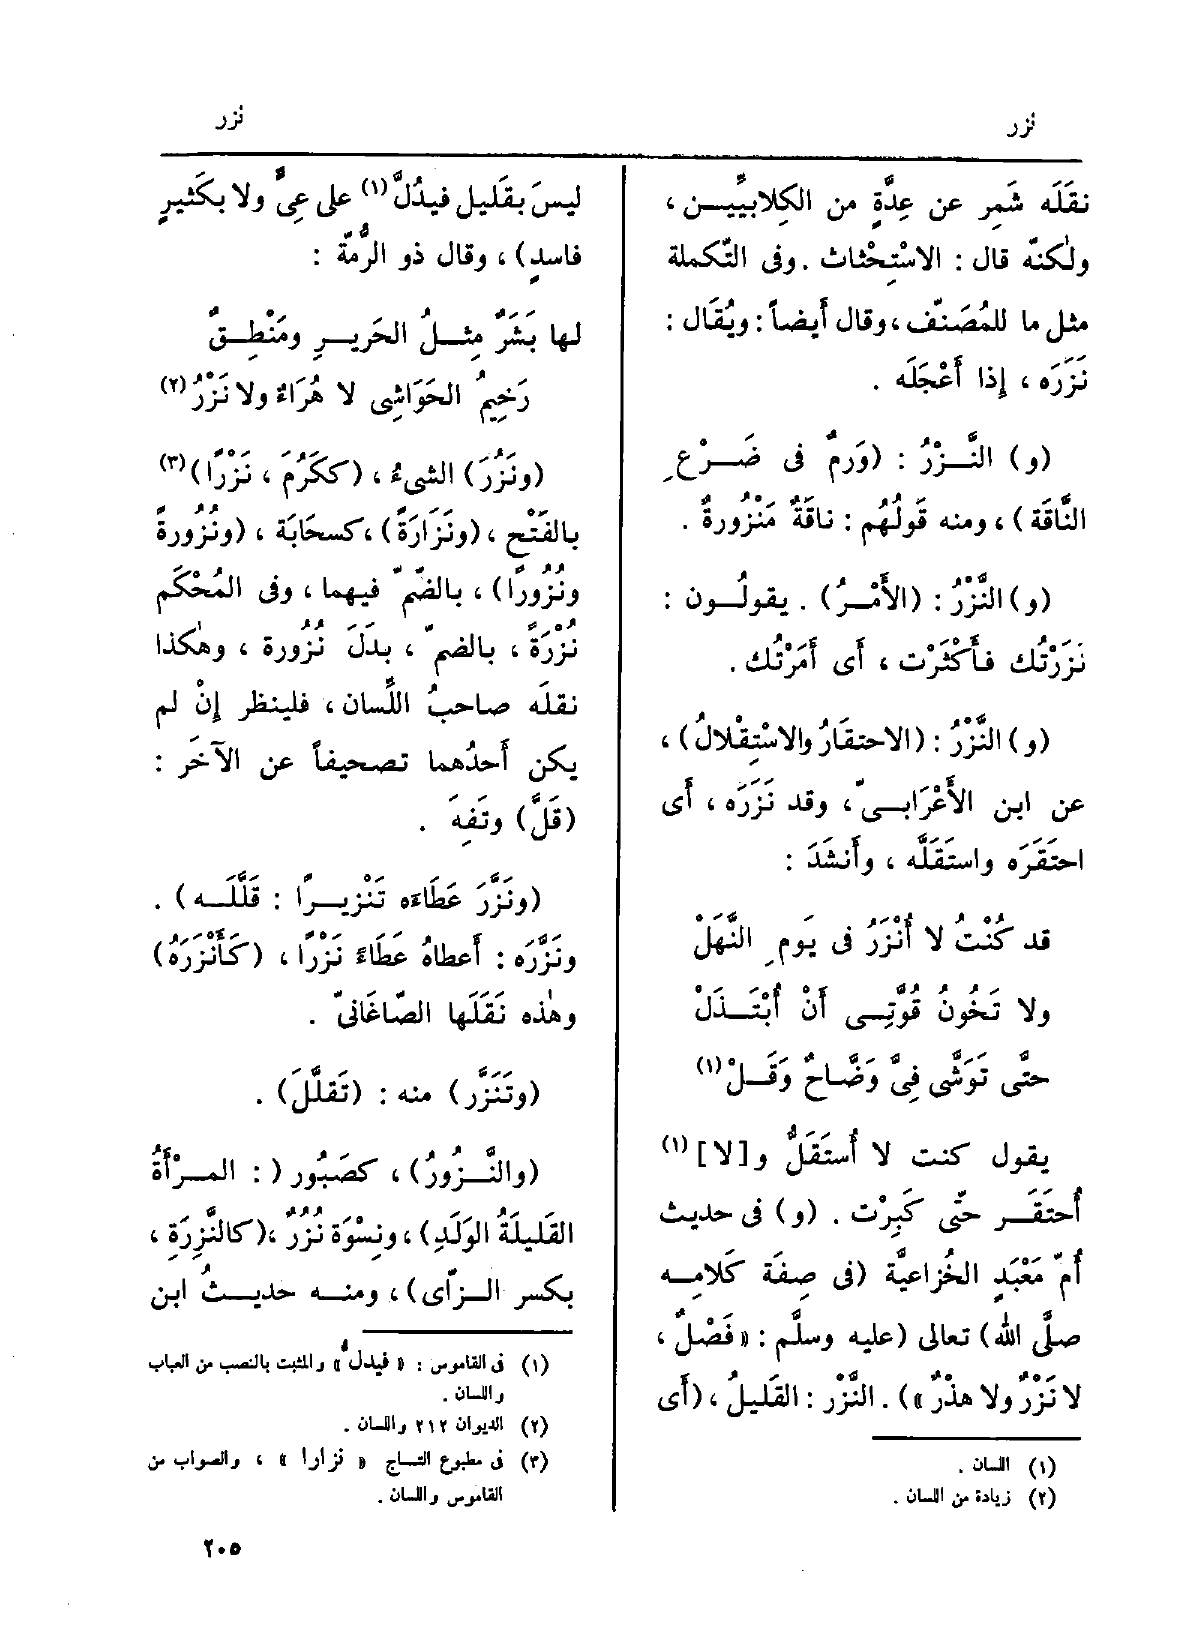 نزر
نزر
نقَلَه شَمِر عن عِدَّةٍ من الكِلابيِّيـن ،
ولٰكنّه قال : الاسْتِحْثاث . وفى التّكملة
مثل ما للمُصَنّف ، وقال أَيضاً : ويُقَال :
نَزَرَه ، إِذا أَعْجَلَه .
(و) النَّـزْرُ : (وَرمٌ فى ضَـرْعِ
النَّاقَة) ، ومنه قَولُهُم : ناقَةٌ مَنْزُورةٌ .
(و) النَّزْرُ : (الأَمْـرُ) . يقولُـون :
نَزَرْتُك فـأَكْثَرْت ، أَى أَمَرْتُك .
(و) النَّزْرُ : (الاحتقَارُ والاسْتِقْلالُ) ،
عن ابن الأَعْرَابـىّ ، وقد نَزَرَه ، أَى
احتَقَرَه واستَقَلَّه ، وأَنشَدَ :
قد كُنْتُ لا أُنْزَرُ فى يَومِ النَّهَلْ
ولا تَخُونُ قُوَّتِـى أَنْ أُبْتَـذَلْ
حتَّى تَوَشَّى فِىَّ وَضَّـاحٌ وَقَـلْ (١)
يقول كنت لا أُستَقَلُّ و[لا] (١)
أُحتَقَـر حتّى كَبِرْت . (و) فى حديث
أُمّ مَعْبَدٍ الخُزاعيَّة (فى صِفَة كَلامِـه
صلَّى الله) تعالى (عليه وسلَّم : « فَصْلٌ ،
لا نَزْرٌ ولا هذْرٌ ») . النَّزْر : القَليلُ ، (أَى
(١) اللسان .
(٢) زيادة من اللسان .
ليسَ بقَليل فيدُلَّ (١) على عِىٍّ ولا بكَثيرٍ
فاسدٍ) ، وقال ذو الرُّمّة :
لها بَشَرٌ مِثـلُ الحَريـرِ ومَنْطِـقٌ
رَخِيمُ الحَوَاشِى لا هُرَاءٌ ولا نَزْرُ (٢)
(ونَزُرَ) الشىءُ ، (ككَرُمَ ، نَزْرًا) (٣)
بالفَتْح ، (ونَزَارَةً) ، كسحَابَة ، (ونُزُورةً
ونُزُورًا) ، بالضّمّ فيهما ، وفى المُحْكَم
نُزْرَةً ، بالضمّ ، بدَلَ نُزُورة ، وهٰكذا
نقلَه صاحبُ اللِّسان ، فلينظر إِنْ لم
يكن أَحدُهما تصحيفاً عن الآخَر :
(قَلَّ) وتَفِهَ .
(ونَزَّرَ عَطَاءَه تَنْزيـرًا : قَلَّلَـه) .
ونَزَّرَه : أَعطاهُ عَطَاءً نَزْرًا ، (كَأَنْزَرَهُ)
وهٰذه نَقَلَها الصّاغَانىّ .
(وتَنَزَّر) منه : (تَقلَّلَ) .
(والنَّـزُورُ) ، كصَبُور ( : المـرْأَةُ
القَليلَةُ الوَلَدِ) ، ونِسْوَة نُزُرٌ ، (كالنَّزِرَةِ ،
بكسر الـزّاى) ، ومنـه حديـثُ ابن
(١) فى القاموس : « فيدلُ » والمثبت بالنصب من العباب
واللسان .
(٢) الديوان ٢١٢ واللسان .
(٣) فى مطبوع التـاج « نزارا » ، والصواب من
القاموس واللسان .
٢٠٥